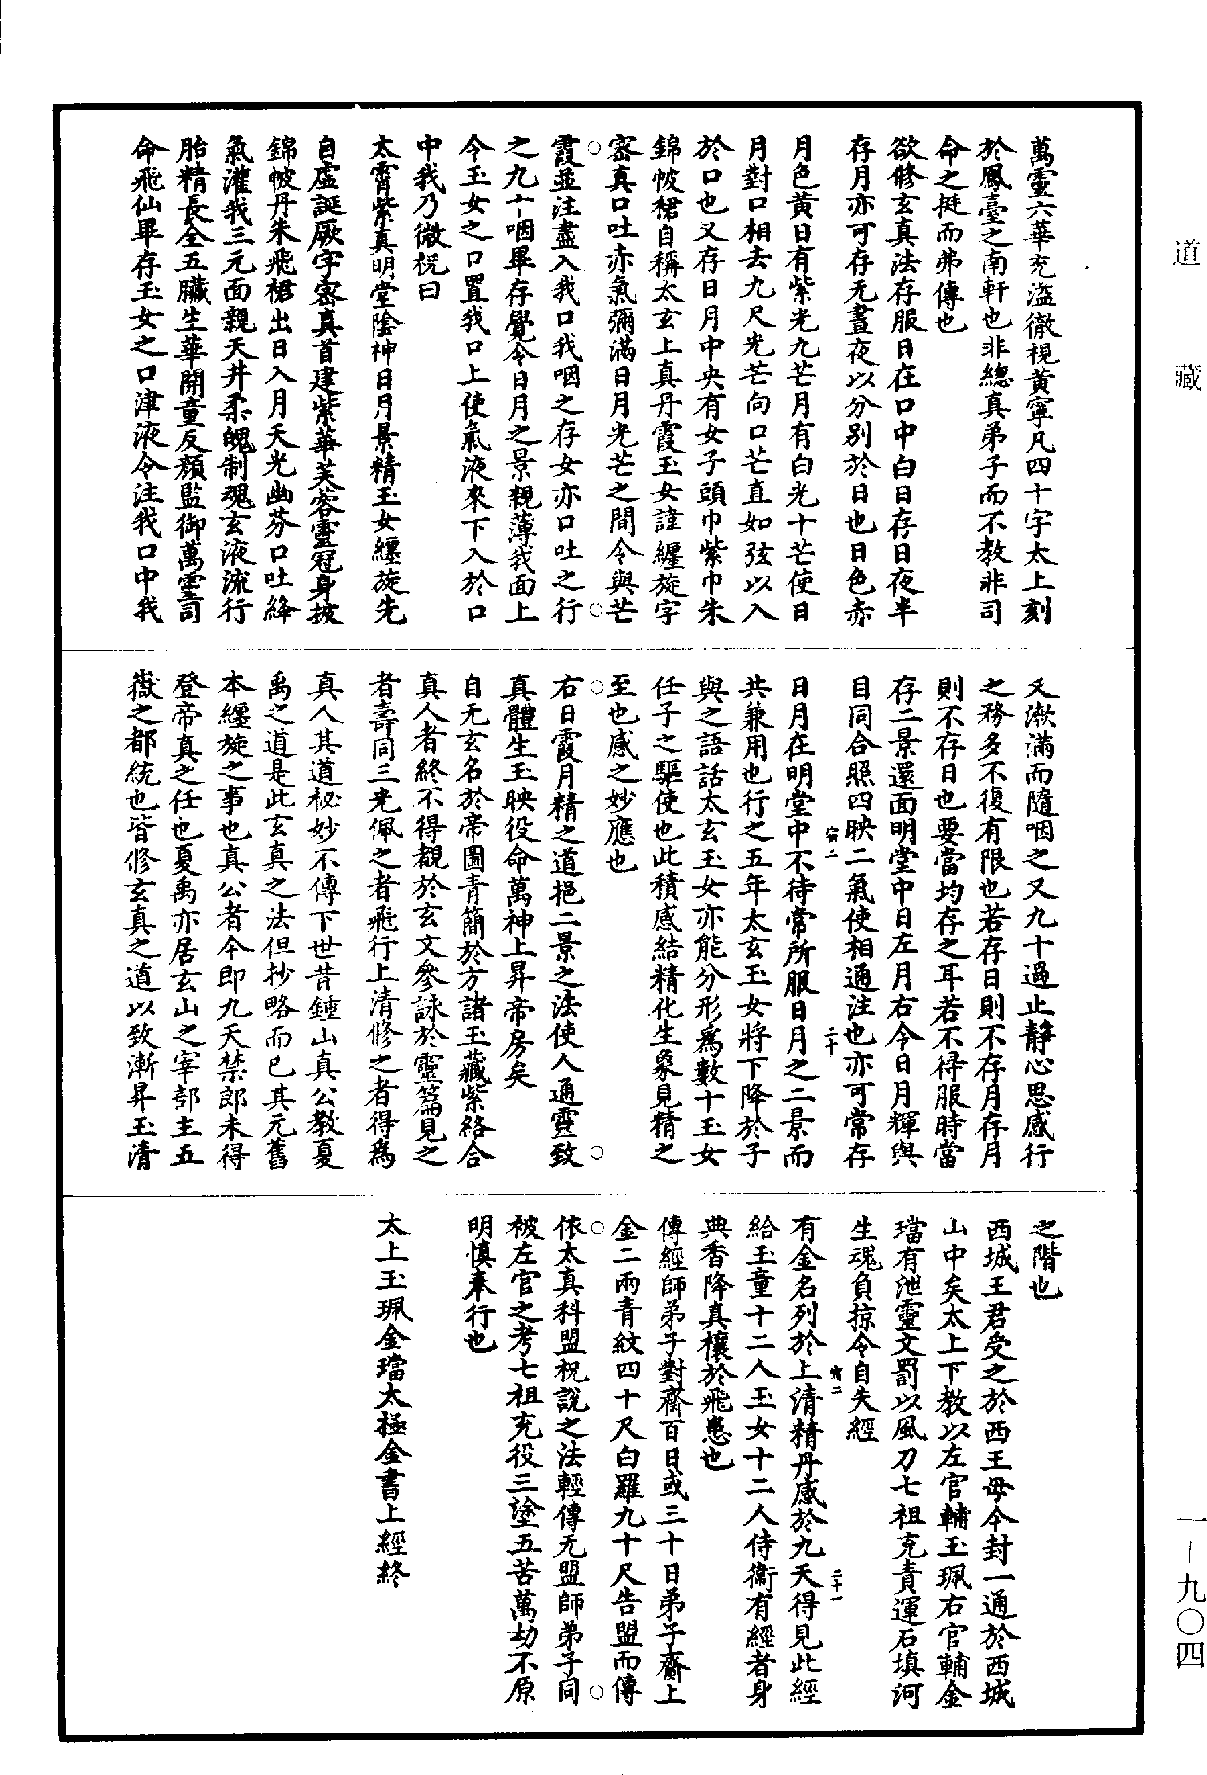 道藏
一—九〇四
萬靈六華充溢徹視黃寧凡四十字太上刻
於鳳臺之南軒也非總真弟子而不教非司
命之挺而弗傳也
欲修玄真法存服日在口中白日存日夜半
存月亦可存无晝夜以分別於日也日色赤
月色黃日有紫光九芒月有白光十芒使日
月對口相去九尺光芒向口芒直如弦以入
於口也又存日月中央有女子頭巾紫巾朱
錦帔裙自稱太玄上真丹霞玉女諱纏旋字
密真口吐赤氣彌滿日月光芒之間令與芒
霞並注盡入我口我咽之存女亦口吐之行
之九十咽畢存覺令日月之景親薄我面上
令玉女之口置我口上使氣液來下入於口
中我乃微祝曰
太霄紫真明堂陰神日月景精玉女纏旋先
自虛誕厥字密真首建紫華芙蓉靈冠身披
錦帔丹朱飛裙出日入月天光幽芬口吐絳
氣灌我三元面親天井柔魄制魂玄液流行
胎精長全五臟生華開童反顏監御萬靈司
命飛仙畢存玉女之口津液令注我口中我
又漱滿而隨咽之又九十過止靜心思感行
之務多不復有限也若存日則不存月存月
則不存日也要當均存之耳若不得服時當
存二景還面明堂中日左月右令日月輝與
目同合照四映二氣使相通注也亦可常存
宿二
二十
日月在明堂中不待常所服日月之二景而
共兼用也行之五年太玄玉女將下降於子
與之語話太玄玉女亦能分形爲數十玉女
任子之驅使也此積感結精化生象見精之
至也感之妙應也
右日霞月精之道挹二景之法使人通靈致
真體生玉映役命萬神上昇帝房矣
自无玄名於帝圖青簡於方諸玉藏紫絡合
真人者終不得覩於玄文參詠於靈篇見之
者壽同三光佩之者飛行上清修之者得爲
真人其道祕妙不傳下世昔鍾山真公教夏
禹之道是此玄真之法但抄略而已其元舊
本纏旋之事也真公者今即九天禁郎未得
登帝真之任也夏禹亦居玄山之宰部主五
嶽之都統也皆修玄真之道以致漸昇玉清
之階也
西城王君受之於西王母今封一通於西城
山中矣太上下教以左官輔玉珮右官輔金
璫有泄靈文罰以風刀七祖充責運石填河
生魂負掠令自失經
宿二
二十一
有金名列於上清精丹感於九天得見此經
給玉童十二人玉女十二人侍衛有經者身
典香降真禳於飛患也
傳經師弟子對齋百日或三十日弟子齎上
金二兩青紋四十尺白羅九十尺告盟而傳
依太真科盟祝說之法輕傳无盟師弟子同
被左官之考七祖充役三塗五苦萬劫不原
明慎奉行也
太上玉珮金璫太極金書上經終